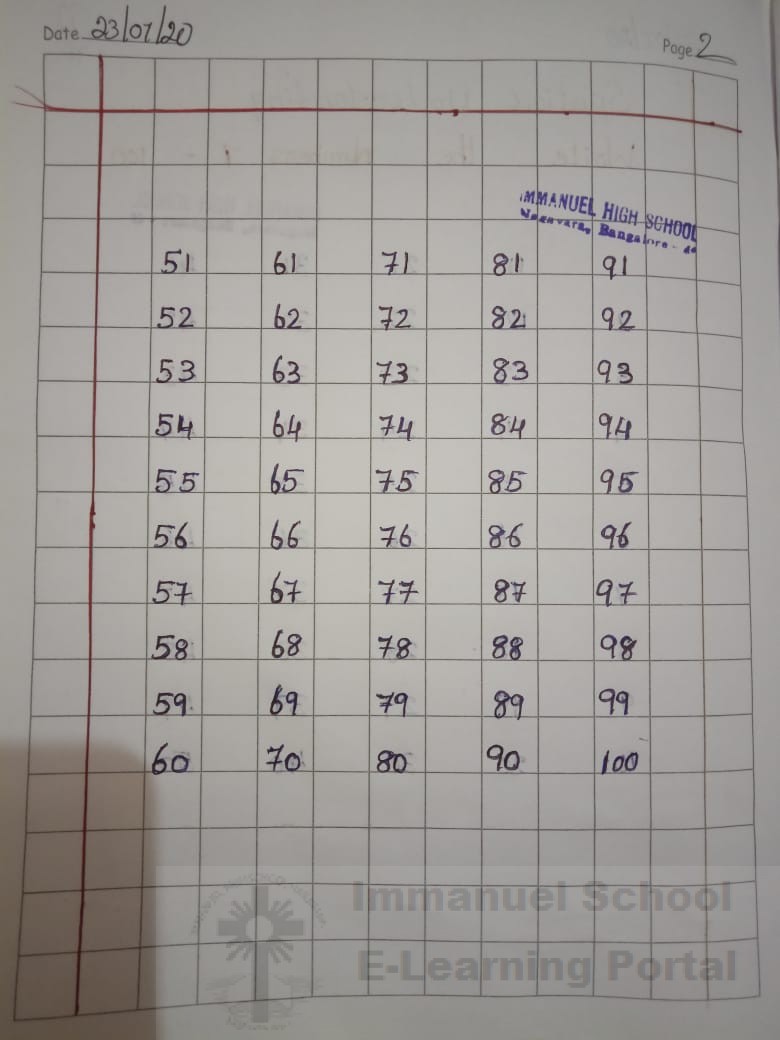 Date 23/07/20
Page 2
IMMANUEL HIGH SCHOOL
Nagavara, Bangalore -
51 61 71 81 91
52 62 72 82 92
53 63 73 83 93
54 64 74 84 94
55 65 75 85 95
56 66 76 86 96
57 67 77 87 97
58 68 78 88 98
59 69 79 89 99
60 70 80 90 100
Immanuel School
E-Learning Portal